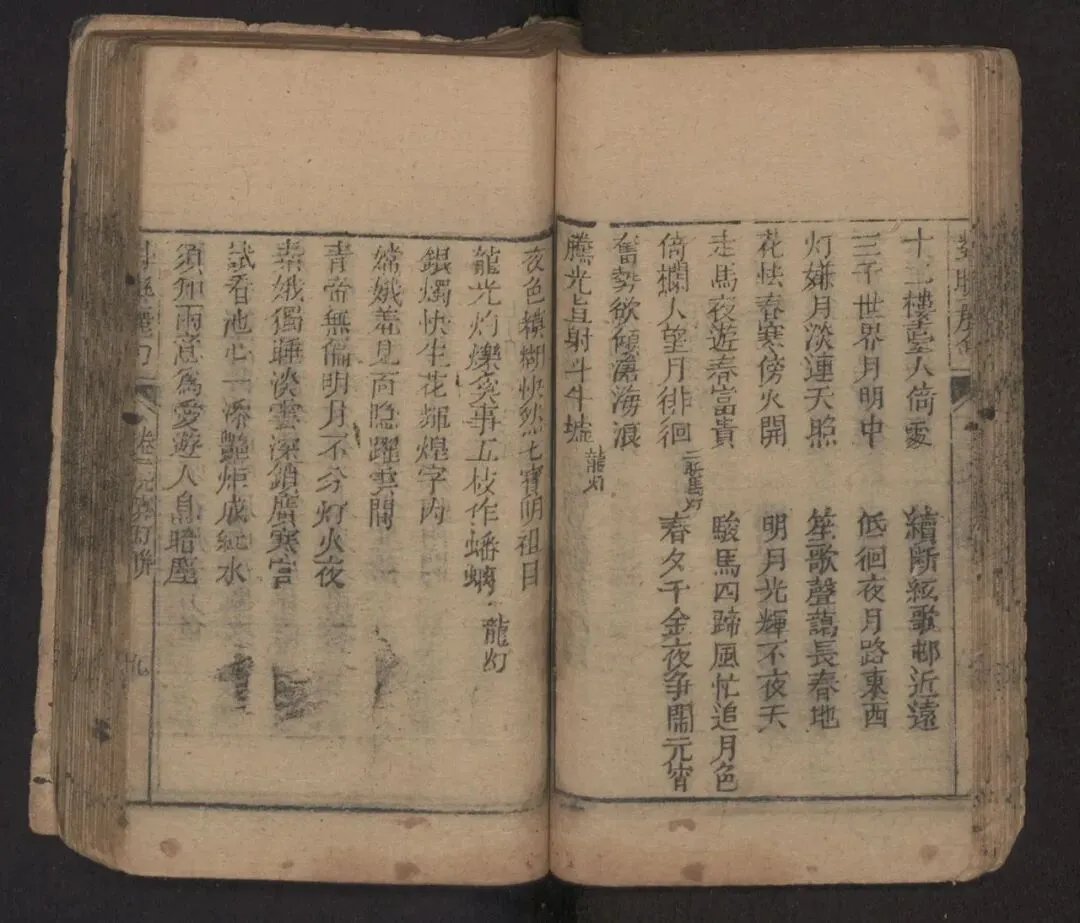 十二樓臺人倚
續斷絃歌邨近遠
三千世界月明中
低徊夜月路東西
灯嫌月淡連天照
笙歌聲藹長春地
花怯春寒傍火開
明月光輝不夜天
走馬夜遊春富貴
駿馬四蹄風忙追月色
倚欄人望月徘徊
春夕千金夜爭鬧元宵
奮勢欲傾滄海浪
騰光直射斗牛墟
龍灯
夜色模糊快㸃七寳明祖日
龍光灼爍奚事五枝作蟠螭
龍灯
銀燭快生花輝煌字內
嫦娥羞見面隐躍雲間
青帝無偏明月不分灯火夜
素娥獨睡淡雲深鎖廣寒宮
試看池心一深艷炬成紅水
須知雨意為愛遊人息暗塵
卷
九